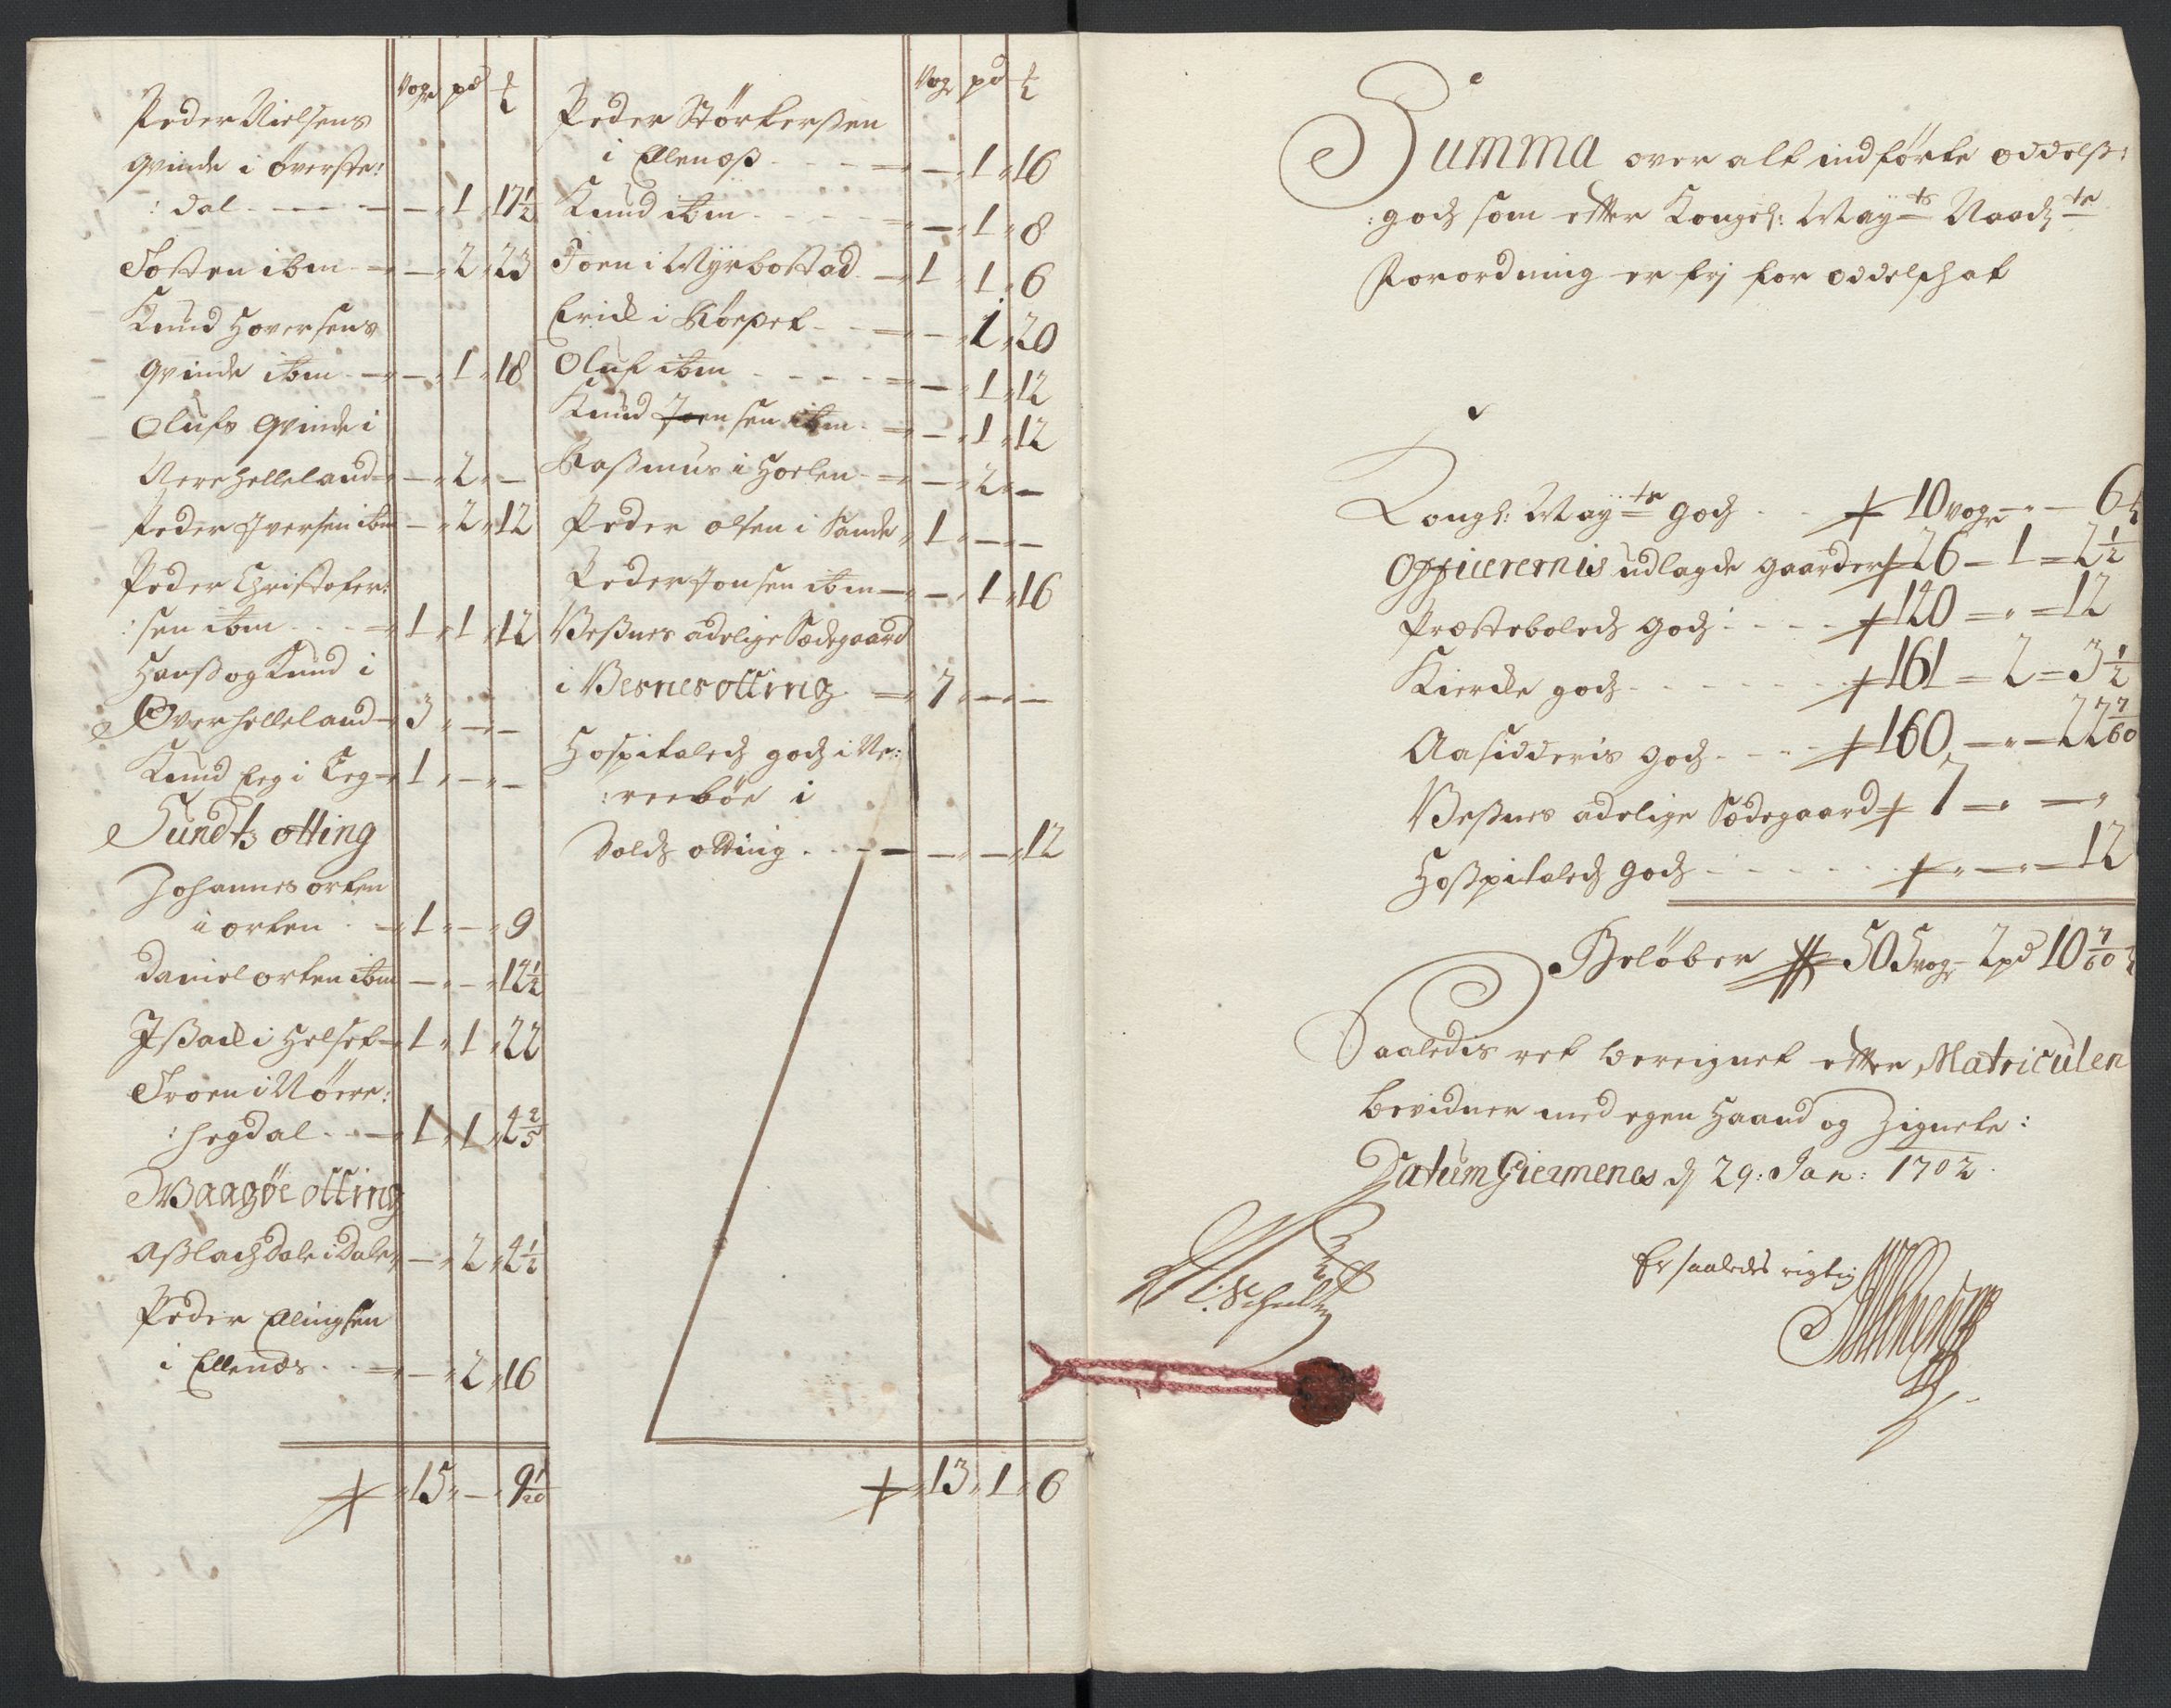 Vogr pd ℔
Peder Nielsens
qvinde i øverste:
:dal - - - - — „ 1 „ 17½
Tosten ibm - — „ 2 „ 23
Knud Hoversens
qvinde ibm - — „ 1 „ 18
Olufs qvinde i
Nerehelleland - — „ 2 „ —
Peder Iversen ibm — „ 2 „ 12
Peder Christofer:
:sen ibm - - - 1 „ 1 „ 12
Hanß og Knud i
Øverhelleland - 3 „ — „ —
Knud Eeg i Eeg - 1 „ — „ —
Sundtz otting
Johannes orten
i orten - 1 „ — „ 9
Daniel orten ibm — „ — „ 12½
Jßack i Helset - 1 „ 1 „ 22
Troen i Nøere:
:hegdal - - 1 „ 1 „ 2 2/5
Waagøe otting
Aßlach Dale i Dale „ — „ 2 „ 2½
Peder Elingsen
i Ellenæs - - — „ 2 „ 16
„ 15 „ — „ 9 1/20
Vogr pd ℔
Peder Størkerßen
i Ellenæß - - - — „ 1 „ 16
Knud ibm - - - — „ 1 „ 8
Joen i Myrbostad - 1 „ 1 „ 6
Erick i Røepet - - — „ 1 „ 20
Oluf ibm - - - — „ 1 „ 12
Knud Joensen ibm - — „ 1 „ 12
Raßmus i Hoelen - — „ 2 „ —
Peder olsen i Sande „ 1 „ — „ —
Peder Jonsen ibm — „ 1 „ 16
Weßnes adelige Sædegaard
i Vesnes otting - 7 „ — „ —
Hospitaleds godz i Ne:
:reebøe i
Bolds otting - - — „ — „ 12
„ 13 „ 1 „ 6
Summa over alt indførte oddelß:
:godz som efter Kongel: Mayts Naadste
Forordning er frj for oddelschat
Kongl: Mayts godz - - 10 vogr „ — 6 ℔
Officerernis udlagde gaarder 26 — 1 = 2½
Præsteboleds godz - - - 140 = „ = 12
Kiercke godz - - - - 161 = 2 = 3½
Aasidderis godz - - - 160 „ — „ — 22 7/60
Weßnes adelige Sædegaard 7 — „ — „
Hoßpitaleds godz - - - „ — „ — 12
Beløber 505 vogr 2 pd 10 7/60 ℔
Saaledis ret bereignet efter Matriculen
bevidner med egen Haand og Zignete:
Datum Giermenes d 29: Jan: 1702.
Schultz
Er saaledes rigtig